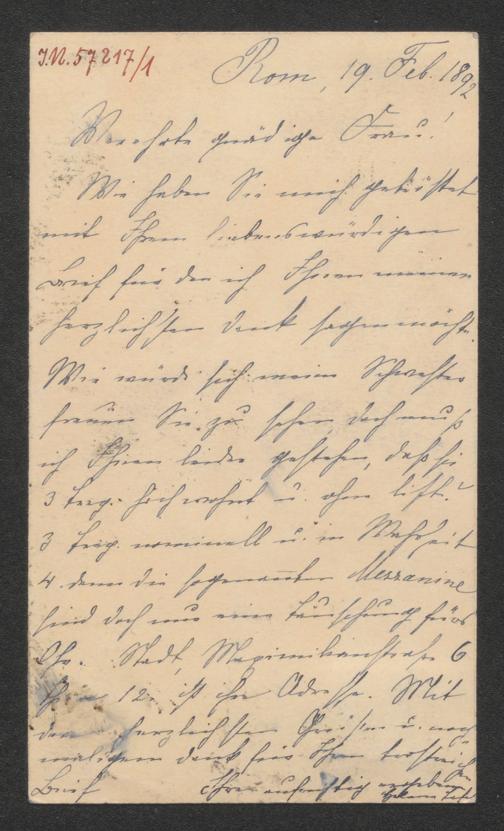 J.N. 57217/1
Rom, 19. Feb. 1892
Verehrte gnädige Frau!
Wie haben Sie mich getröstet
mit Ihrem liebenswürdigen
Brief für den ich Ihnen meinen
herzlichsten Dank sagen möchte.
Wie würde sich meine Schwester
freuen Sie zu sehen, doch muß
ich Ihnen leider gestehen, daß sie
3 Trep. hoch wohnt u. ohne Lift.
3 Trep. nominell u. in Wahrheit
4. denn die sogenannten Mezzanine
sind doch nur eine Täuschung fürs
Ohr. Stadt, Maximilianstraße 6
Thür 12 ist ihre Adresse. Mit
den herzlichsten Grüßen u. noch
maligem Dank für Ihren trostreichen
Brief Ihre aufrichtig ergebene